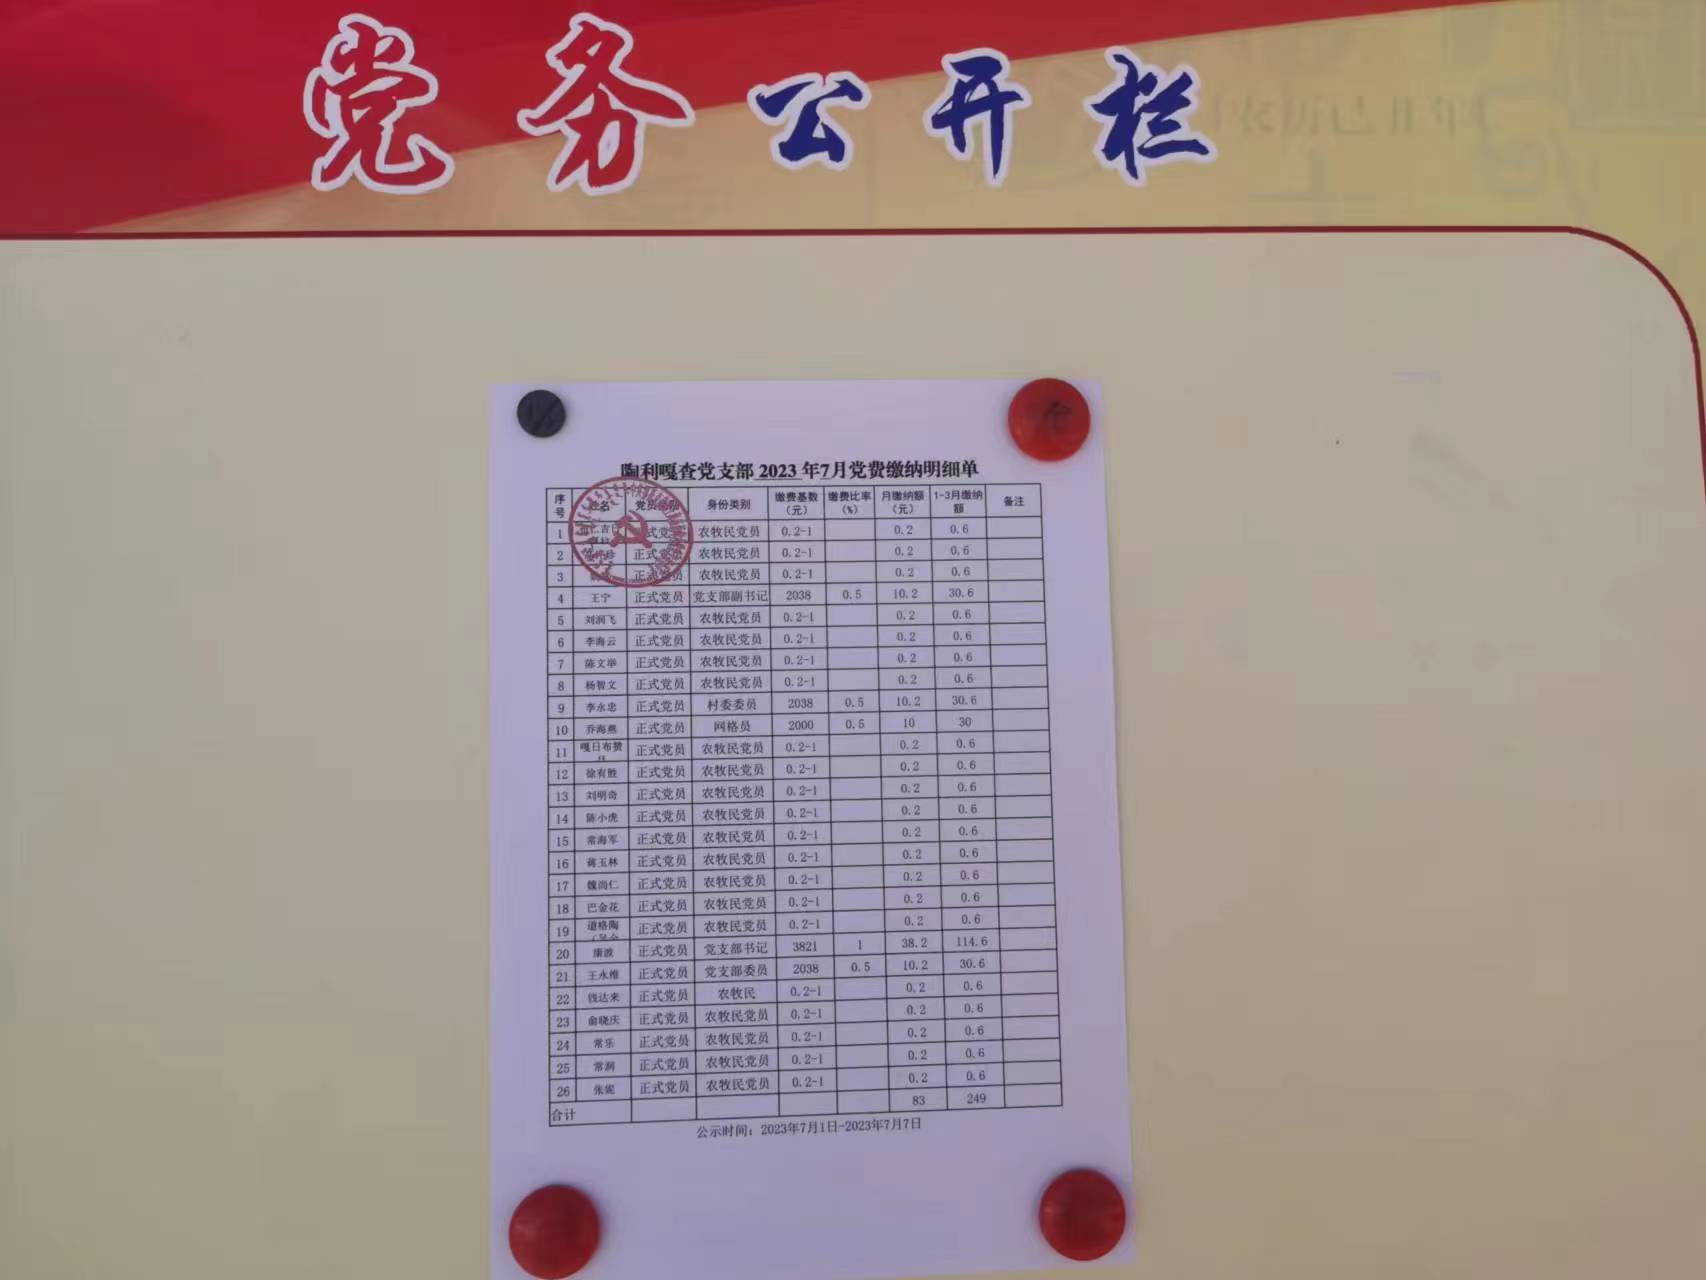 党务公开栏
陶利嘎查党支部 2023 年7月党费缴纳明细单
序号 姓名 党员 身份类别 缴费基数(元) 缴费比率(%) 月缴纳额(元) 1-3月缴纳额 备注
1 正式党员 农牧民党员 0.2-1 0.2 0.6
2 正式党员 农牧民党员 0.2-1 0.2 0.6
3 正式党员 农牧民党员 0.2-1 0.2 0.6
4 王宁 正式党员 党支部副书记 2038 0.5 10.2 30.6
5 刘润飞 正式党员 农牧民党员 0.2-1 0.2 0.6
6 李海云 正式党员 农牧民党员 0.2-1 0.2 0.6
7 陈文举 正式党员 农牧民党员 0.2-1 0.2 0.6
8 杨智文 正式党员 农牧民党员 0.2-1 0.2 0.6
9 李永忠 正式党员 村委委员 2038 0.5 10.2 30.6
10 乔海燕 正式党员 网格员 2000 0.5 10 30
11 嘎日布赞 正式党员 农牧民党员 0.2-1 0.2 0.6
12 徐有胜 正式党员 农牧民党员 0.2-1 0.2 0.6
13 刘明奇 正式党员 农牧民党员 0.2-1 0.2 0.6
14 陈小虎 正式党员 农牧民党员 0.2-1 0.2 0.6
15 常海军 正式党员 农牧民党员 0.2-1 0.2 0.6
16 蒋玉林 正式党员 农牧民党员 0.2-1 0.2 0.6
17 魏尚仁 正式党员 农牧民党员 0.2-1 0.2 0.6
18 巴金花 正式党员 农牧民党员 0.2-1 0.2 0.6
19 道格陶 正式党员 农牧民党员 0.2-1 0.2 0.6
20 康波 正式党员 党支部书记 3821 1 38.2 114.6
21 王永维 正式党员 党支部委员 2038 0.5 10.2 30.6
22 钱达来 正式党员 农牧民 0.2-1 0.2 0.6
23 俞晓庆 正式党员 农牧民党员 0.2-1 0.2 0.6
24 常乐 正式党员 农牧民党员 0.2-1 0.2 0.6
25 常润 正式党员 农牧民党员 0.2-1 0.2 0.6
26 张妮 正式党员 农牧民党员 0.2-1 0.2 0.6
合计 83 249
公示时间：2023年7月1日-2023年7月7日